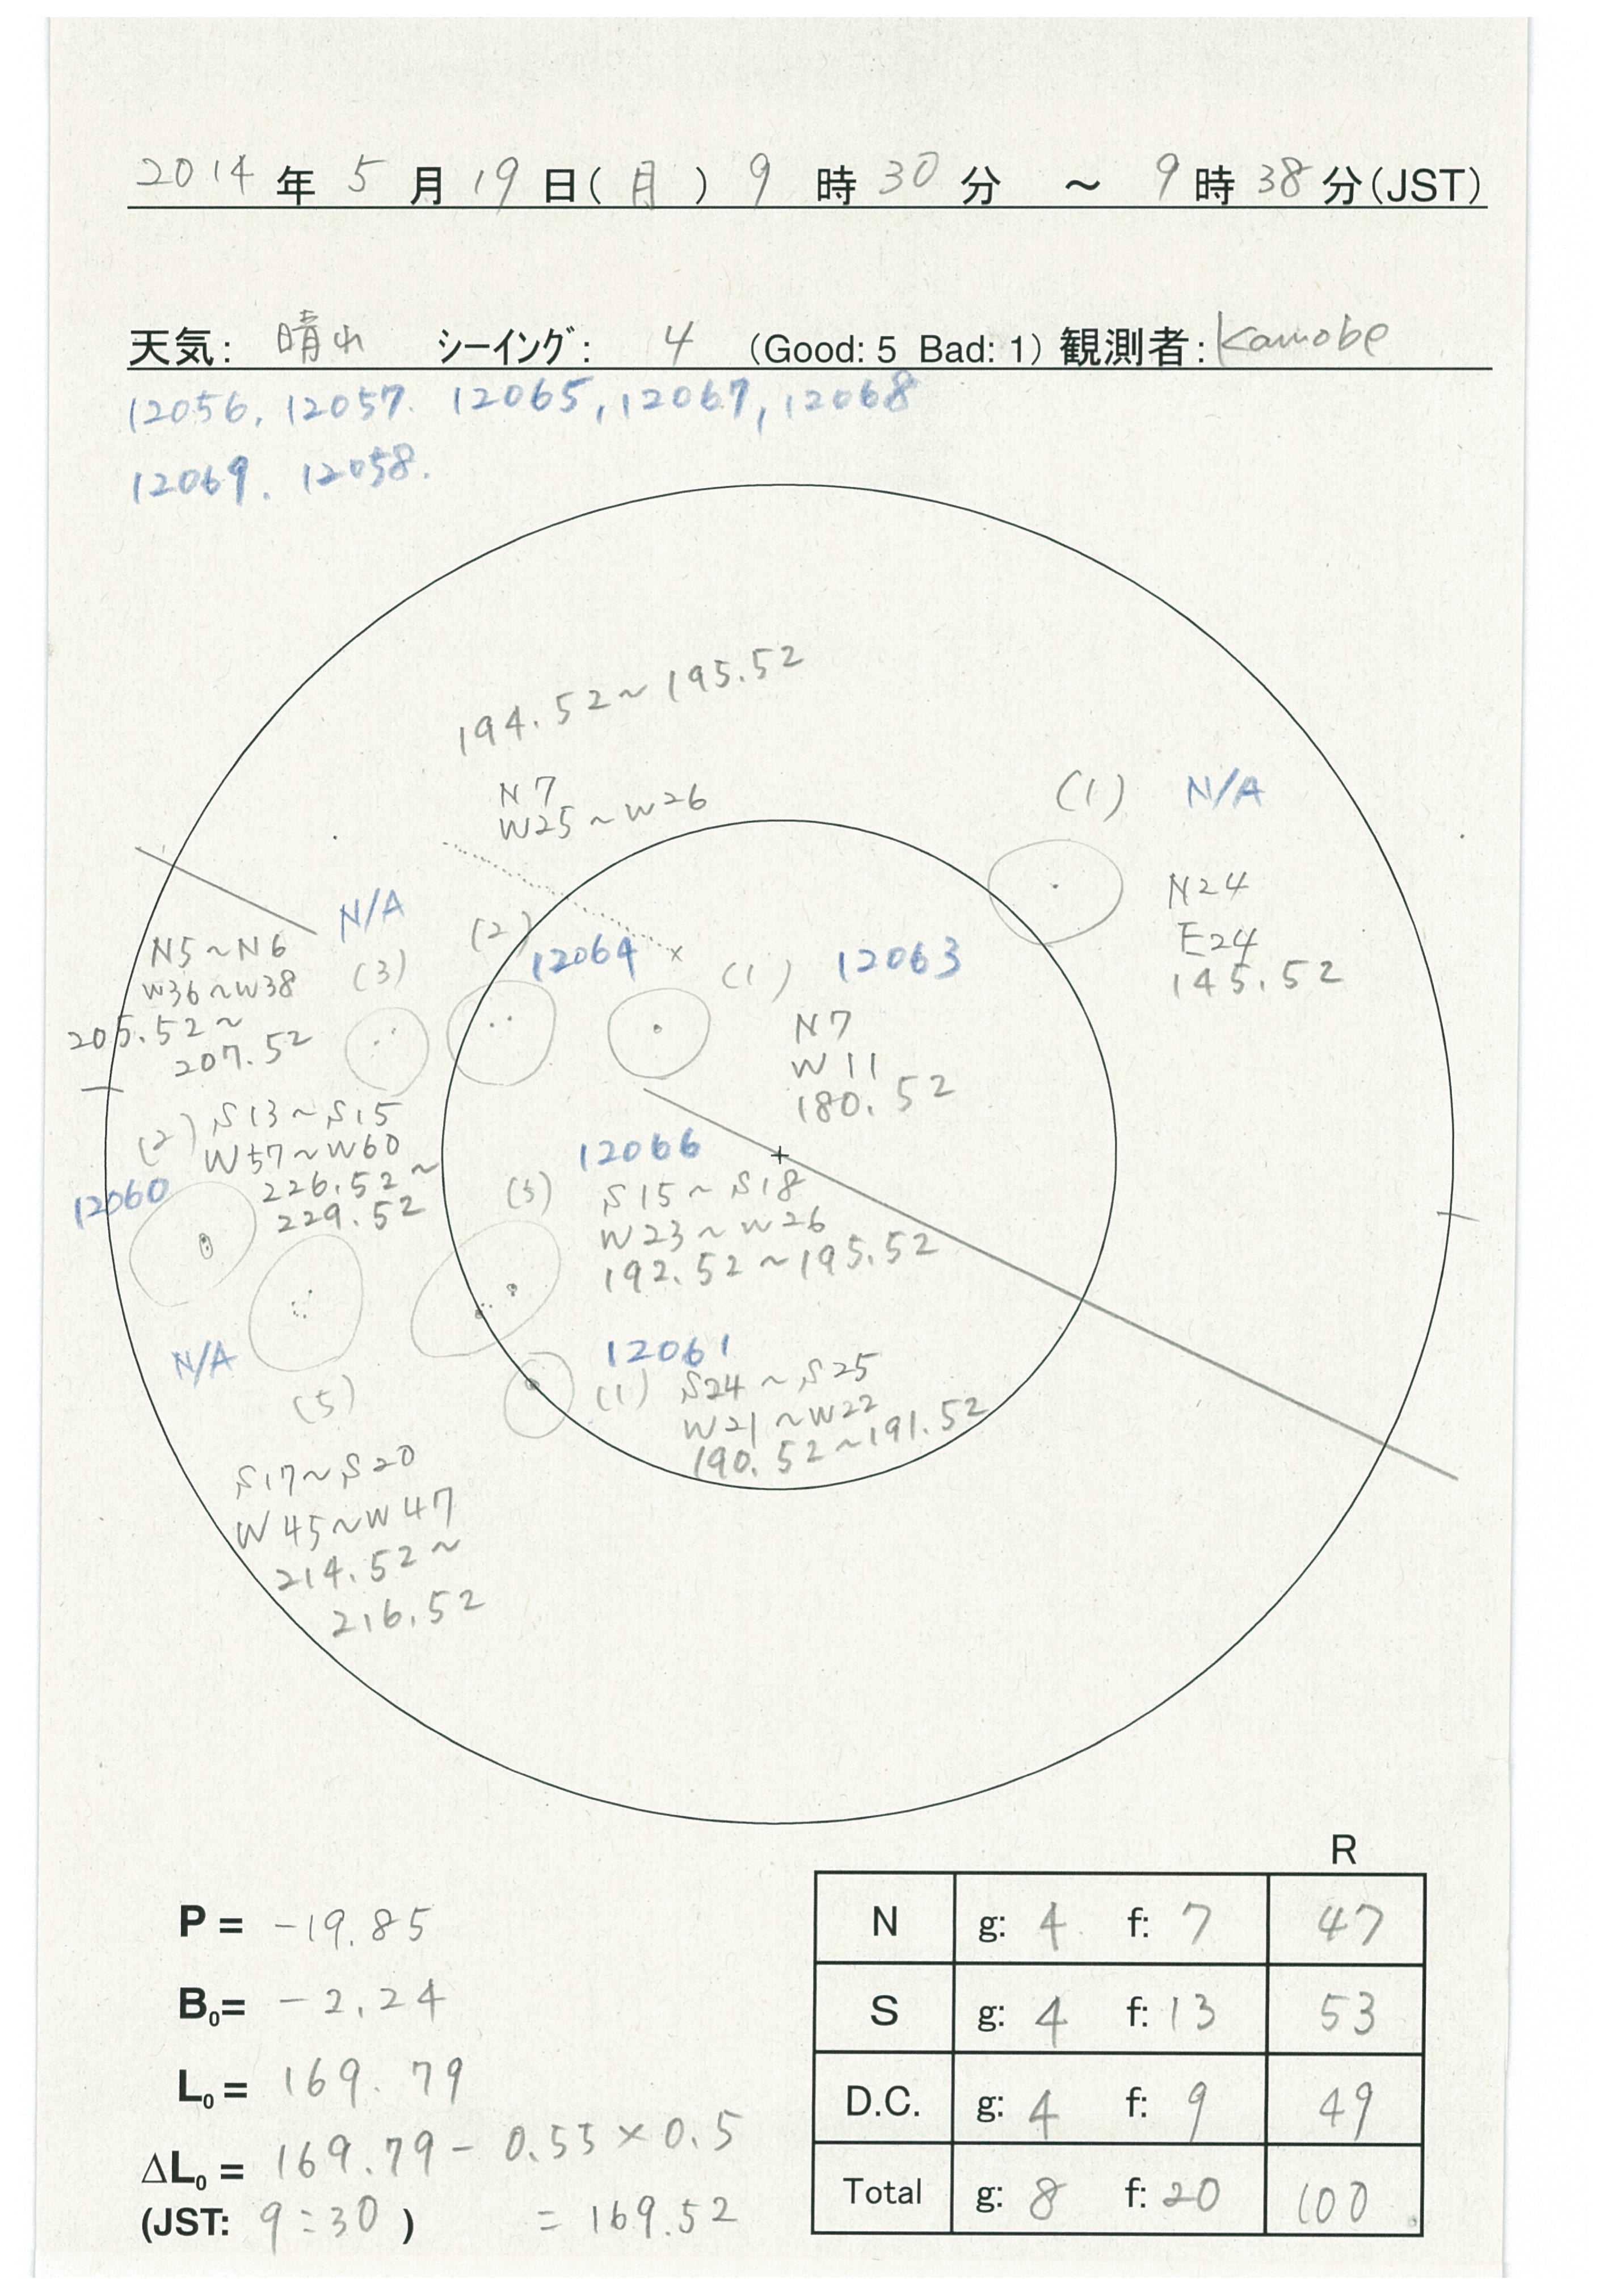 2014年 5月 19日(月) 9時 30分 ～ 9時 38分(JST)
天気: 晴れ ｼｰｲﾝｸﾞ: 4 (Good: 5 Bad: 1) 観測者: Kamobe
12056, 12057. 12065, 12067, 12068
12069. 12058.
194.52～195.52
N7
W25～W26
(2)
12064
(1) N/A
N24
E24
145.52
N/A
(3)
N5～N6
W36～W38
205.52～
207.52
(1) 12063
N7
W11
180.52
(2)
12060
S13～S15
W57～W60
226.52～
229.52
12066
(5)
S15～S18
W23～W26
192.52～195.52
12061
(1) S24～S25
W21～W22
190.52～191.52
N/A
(5)
S17～S20
W45～W47
214.52～
216.52
P = -19.85
B₀= -2.24
L₀= 169.79
ΔL₀= 169.79 - 0.55×0.5
(JST: 9:30) = 169.52
R
N g: 4 f: 7 47
S g: 4 f: 13 53
D.C. g: 4 f: 9 49
Total g: 8 f: 20 100